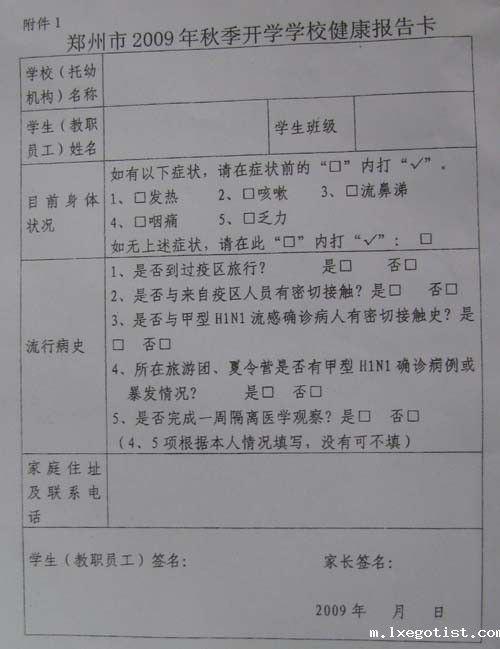 附件 1
郑州市 2009 年秋季开学学校健康报告卡
学校（托幼
机构）名称
学生（教职
员工）姓名
学生班级
目前身体
状况
如有以下症状，请在症状前的“□”内打“✓”。
1、□发热 2、□咳嗽 3、□流鼻涕
4、□咽痛 5、□乏力
如无上述症状，请在此“□”内打“✓”： □
流行病史
1、是否到过疫区旅行？ 是□ 否□
2、是否与来自疫区人员有密切接触？是□ 否□
3、是否与甲型 H1N1 流感确诊病人有密切接触史？是
□ 否□
4、所在旅游团、夏令营是否有甲型 H1N1 确诊病例或
暴发情况？ 是□ 否□
5、是否完成一周隔离医学观察？是□ 否□
（4、5 项根据本人情况填写，没有可不填）
家庭住址
及联系电
话
学生（教职员工）签名： 家长签名：
2009 年 月 日
m.lxegotist.com